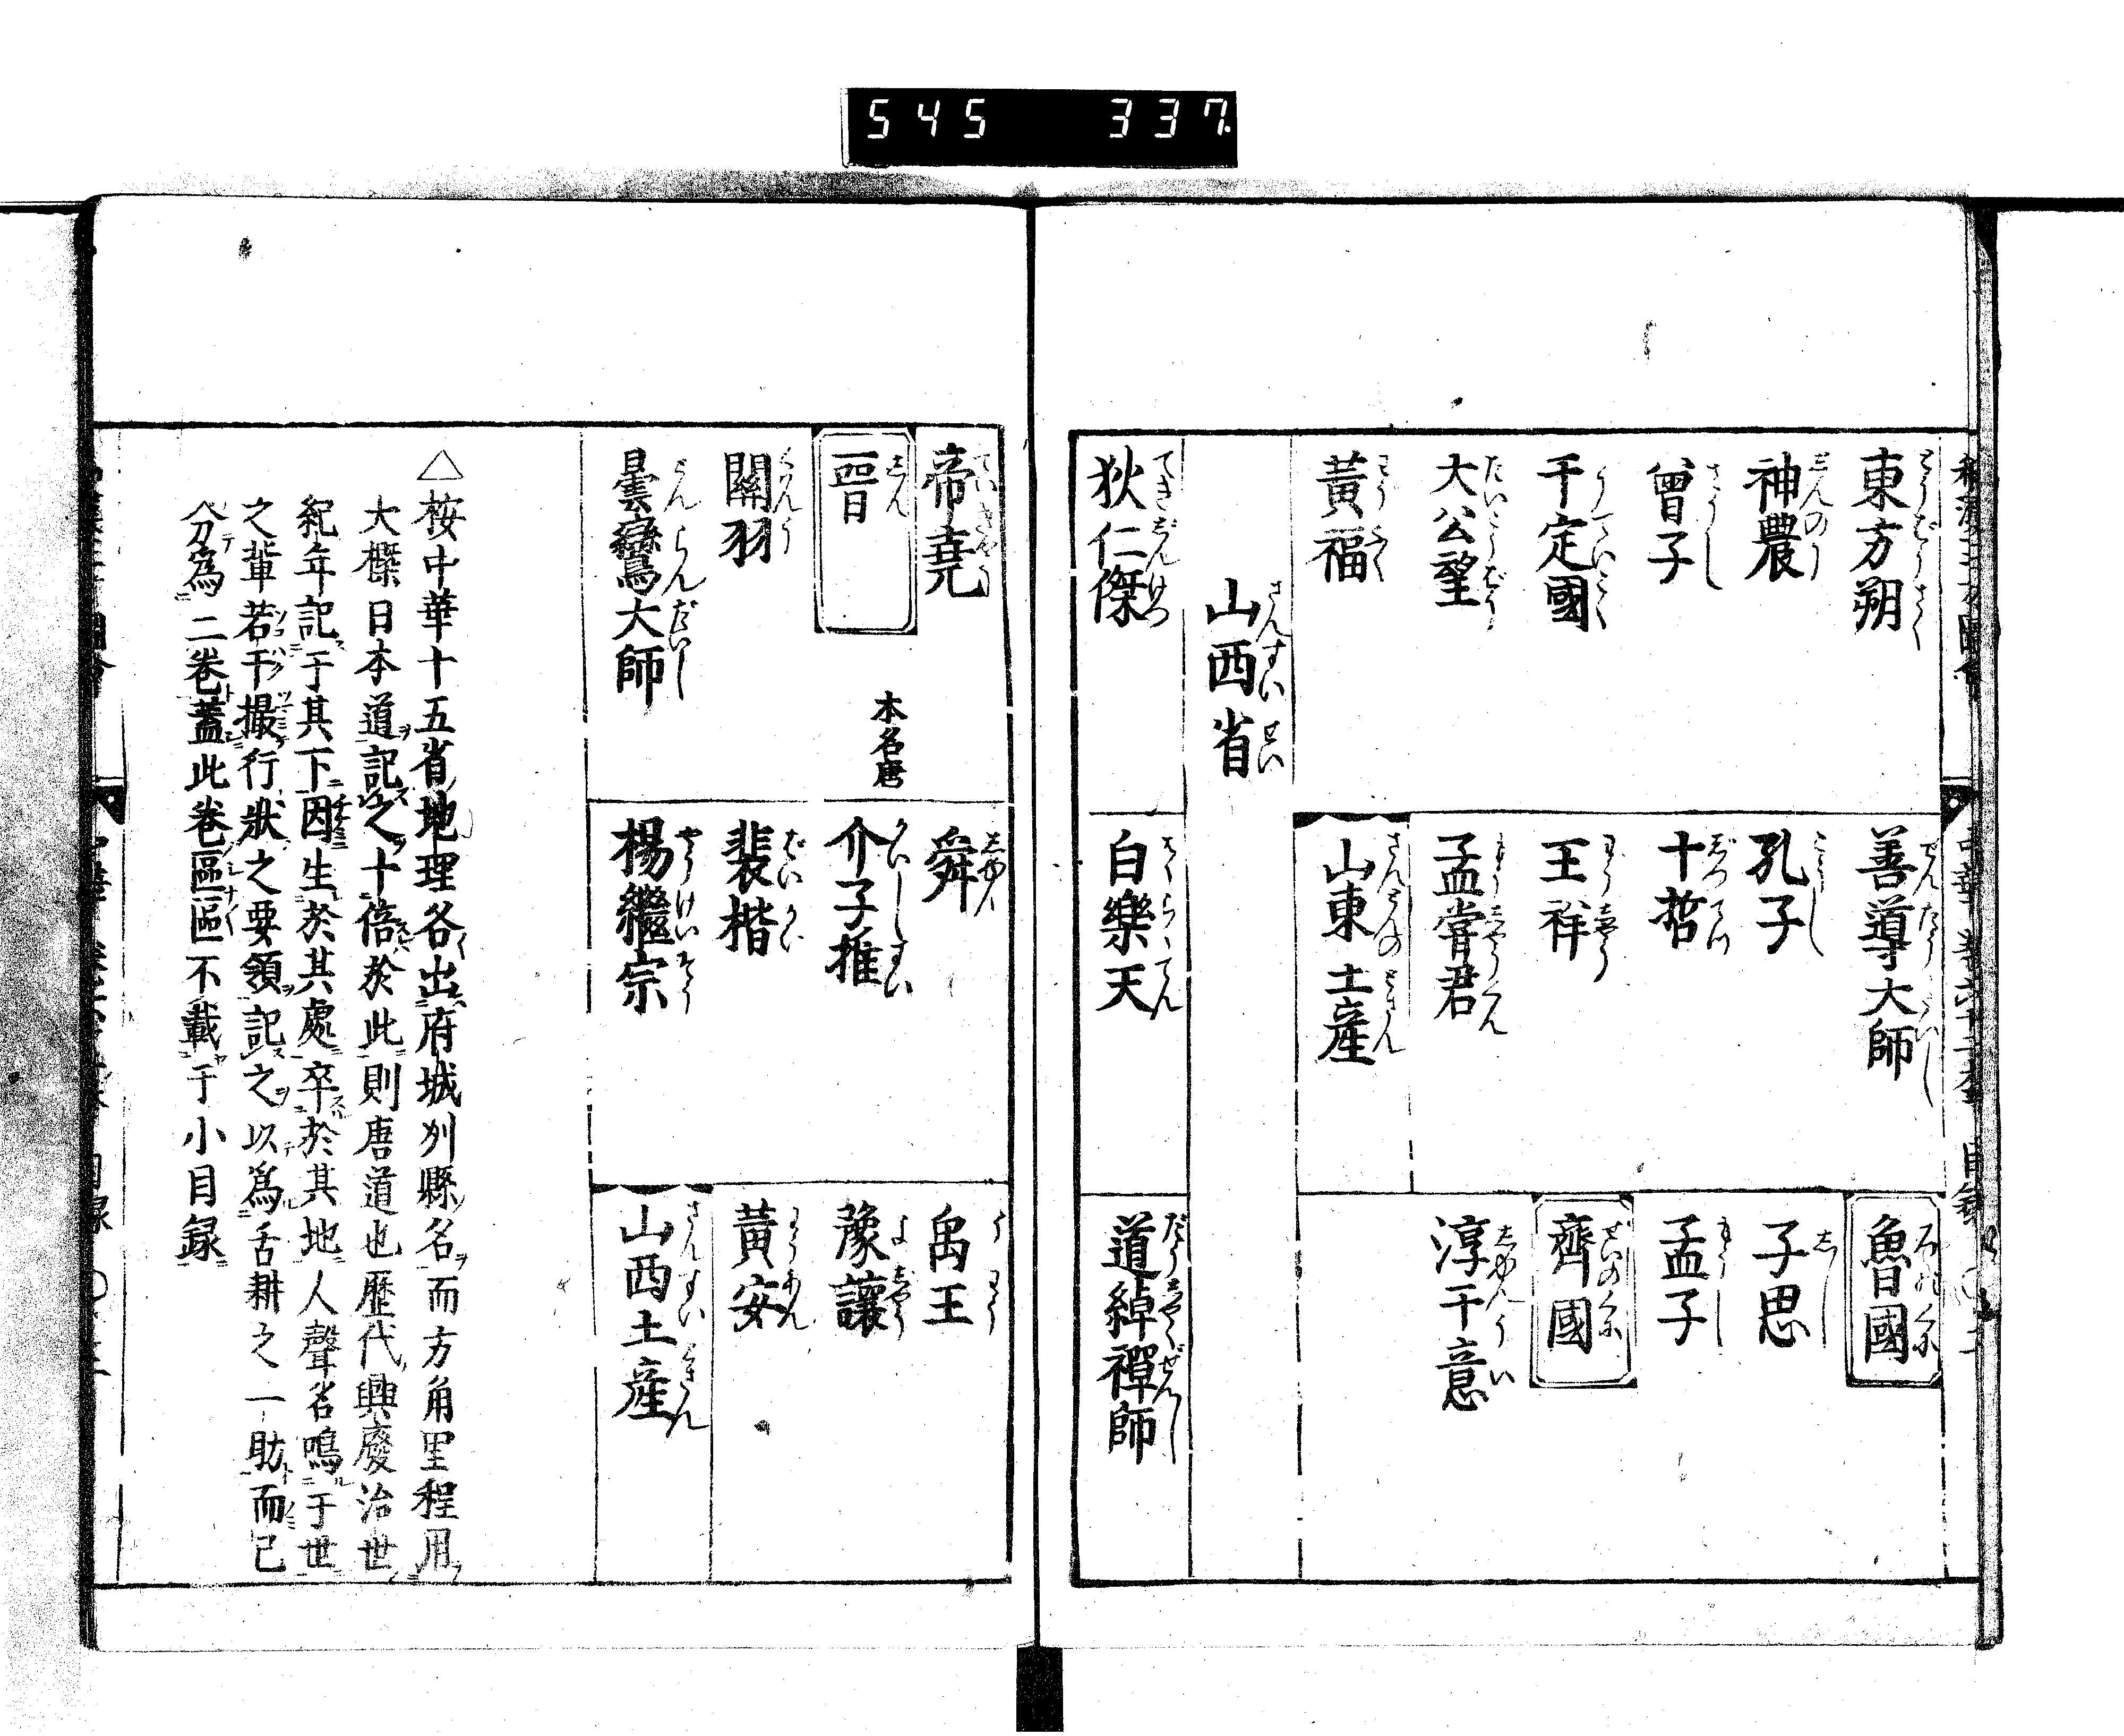 545 337
東方朔
善導大師
魯國
神農
孔子
子思
曾子
十哲
孟子
于定國
王祥
齊國
大公望
孟嘗君
淳于意
黃福
山東土産
山西省
狄仁傑
白樂天
道綽禪師
帝堯
舜
禹王
晋 本名唐
介子推
豫讓
關羽
裴楷
黃安
曇鸞大師
楊繼宗
山西土産
△桉中華十五省地理各出府城州縣名而方角里程用
大槩日本道記之十倍於此則唐道也歷代興廢治世
紀年記于其下因生於其處卒於其地人聲名鳴于世
之輩若干撮行狀之要領記之以爲舌耕之一助而已
分爲二卷蓋此卷區區不載于小目録